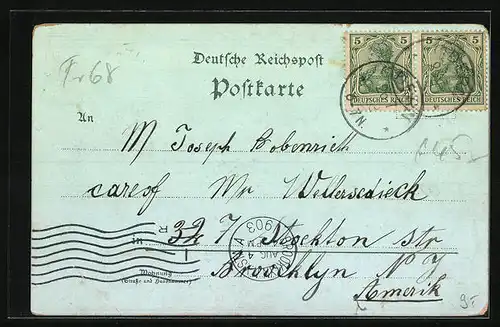 Fr 68
Deutsche Reichspost
Postkarte
5 5 5 5
DEUTSCHES REICH DEUTSCHES REICH
An
M Joseph Bobenrieth
care of Mr Wellersedieck
in 327 Stockton str
Brooklyn N Y
Amerik
Wohnung
(Straße und Hausnummer)
AUG 4
1903
9-